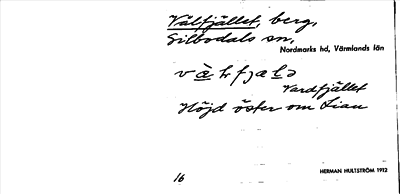 Vålfjället, berg,
Silbodals sn.
Nordmarks hd, Värmlands län
Vardfjället
Höjd öster om Lian
16
HERMAN HULTSTRÖM 1912